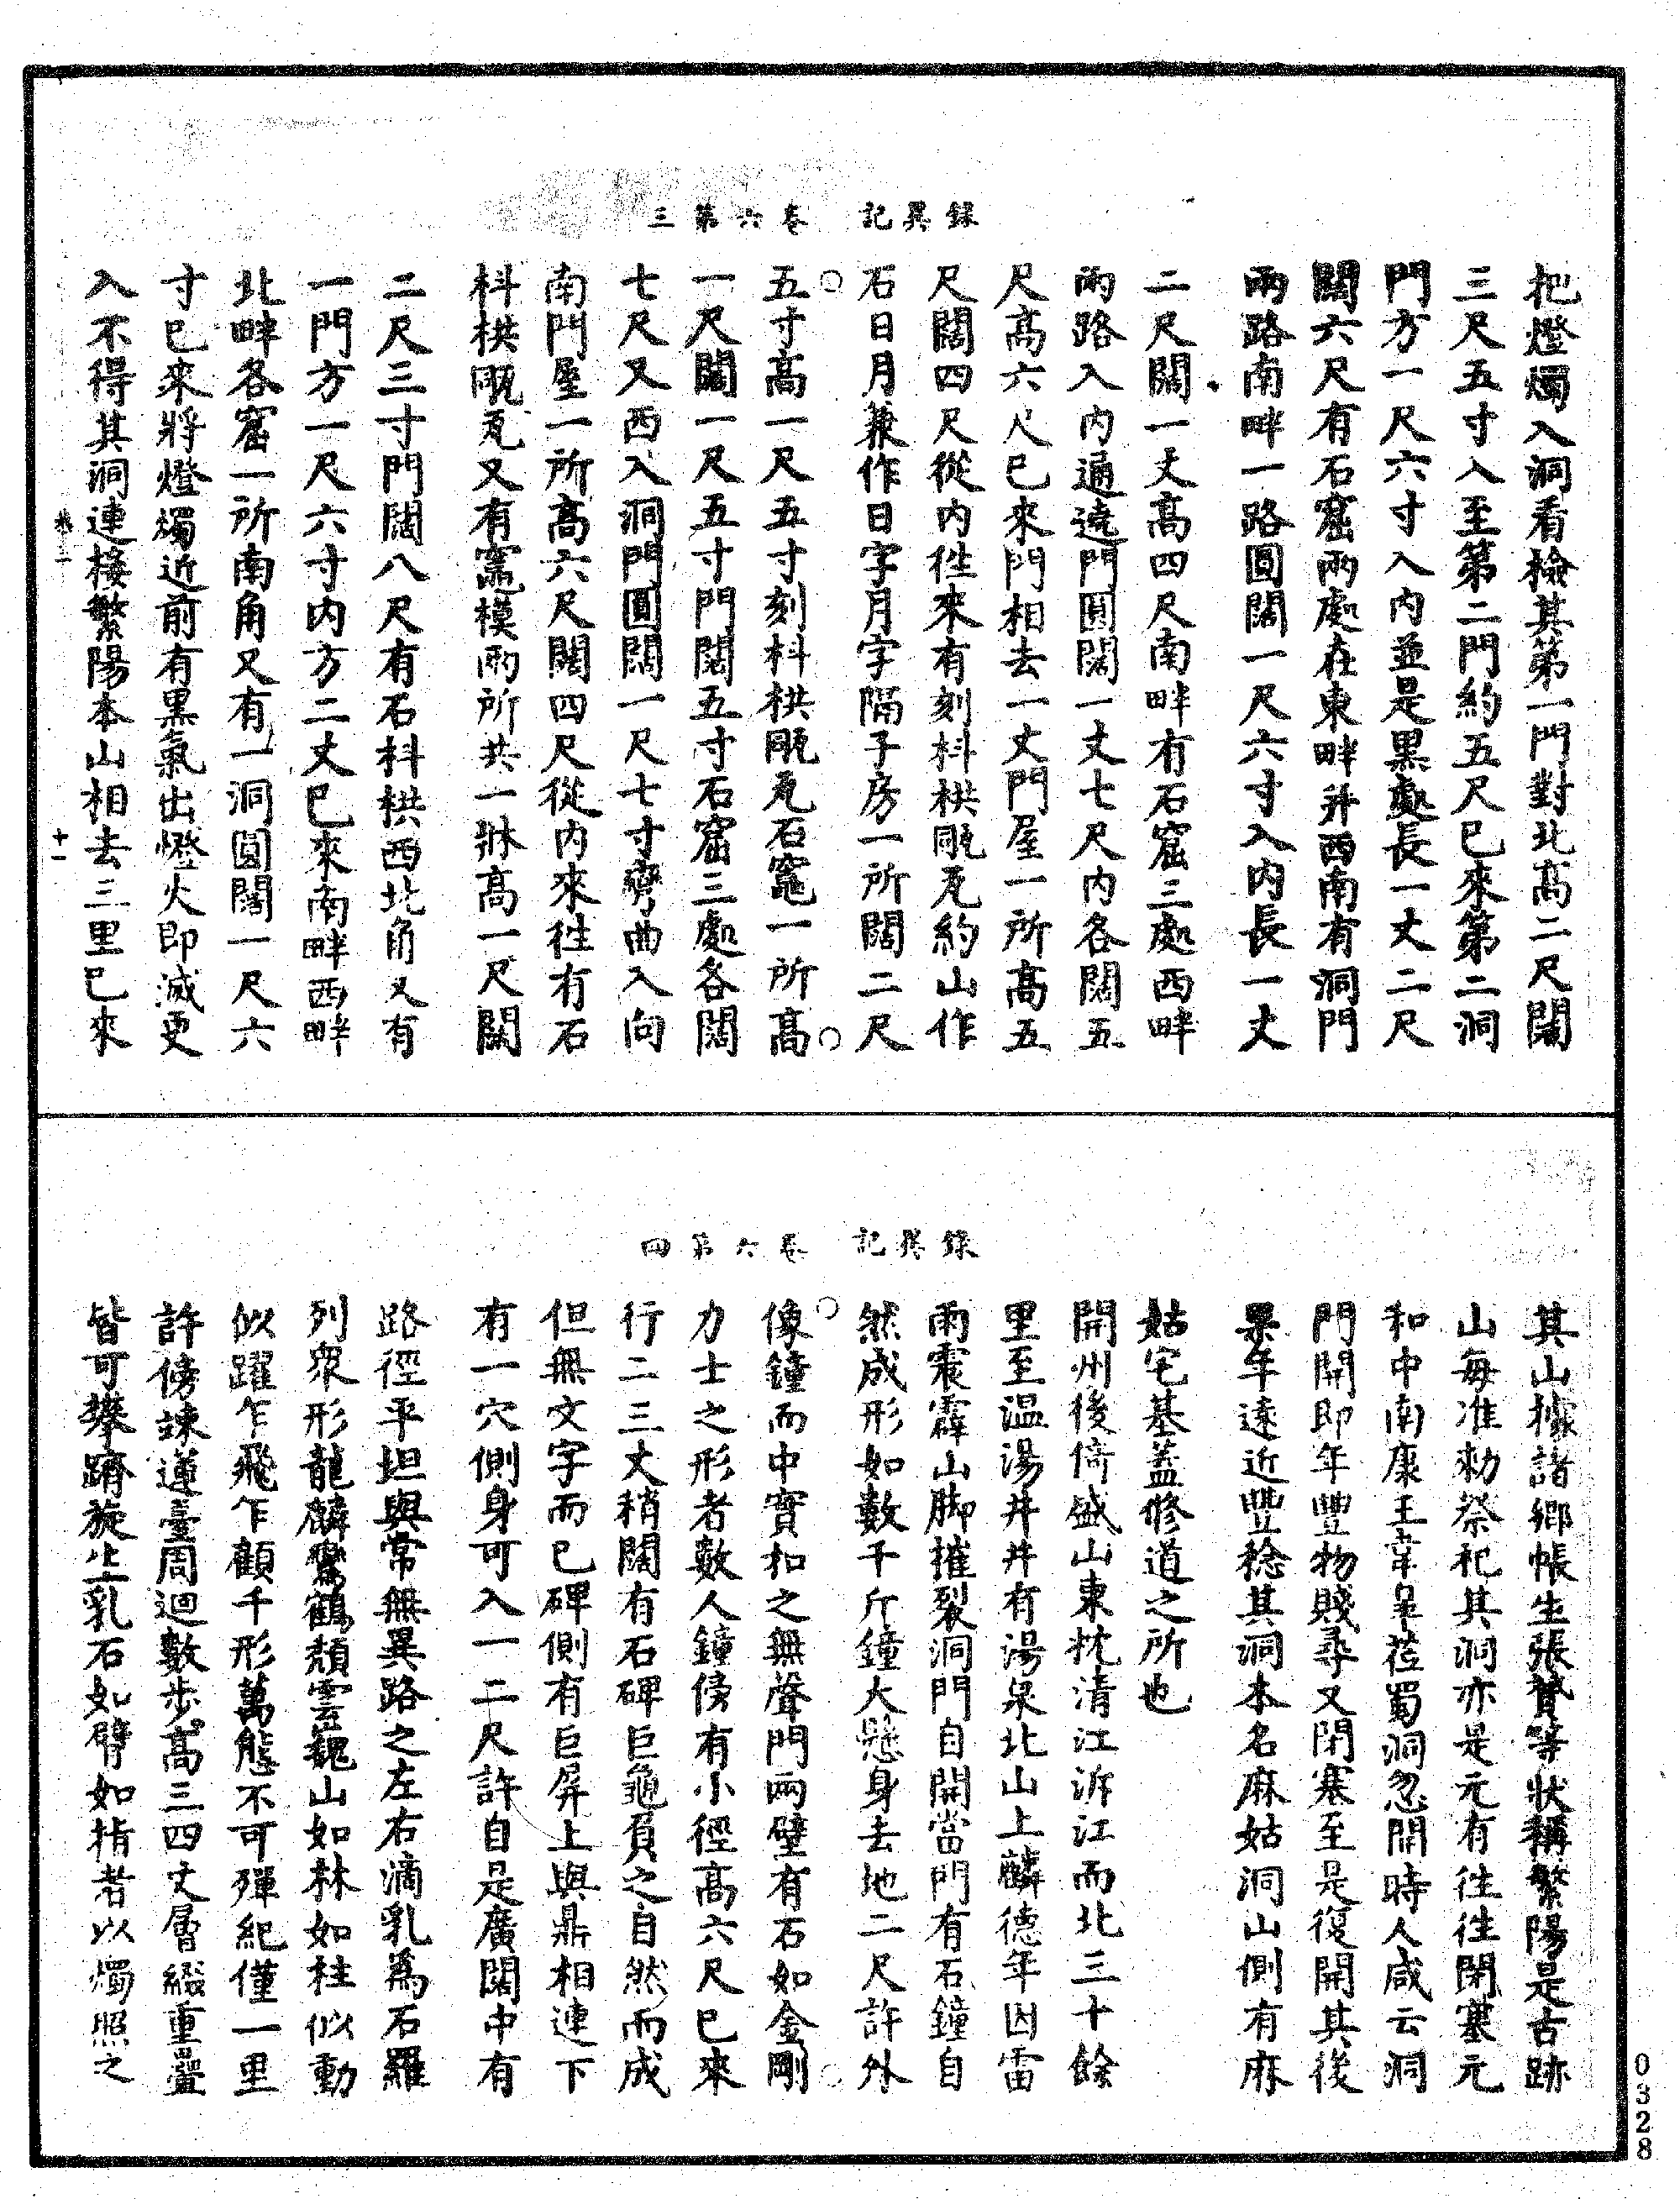 記異録
三第六卷
把燈燭入洞看檢其第一門對北高二尺闊
三尺五寸入至第二門約五尺已來第二洞
門方一尺六寸入內並是黑處長一丈二尺
闊六尺有石窟兩處在東畔并西南有洞門
兩路南畔一路圓闊一尺六寸入內長一丈
二尺闊一丈高四尺南畔有石窟三處西畔
兩路入內通遶門圓闊一丈七尺內各闊五
尺高六尺已來門相去一丈門屋一所高五
尺闊四尺從內徃來有刻枓栱甋瓦約山作
石日月兼作日字月字隔子房一所闊二尺
五寸高一尺五寸刻枓栱甋瓦石竈一所高
一尺闊一尺五寸門闊五寸石窟三處各闊
七尺又西入洞門圓闊一尺七寸彎曲入向
南門屋一所高六尺闊四尺從內來徃有石
枓栱甋瓦又有竈模兩所共一牀高一尺闊
二尺三寸門闊八尺有石枓栱西北角又有
一門方一尺六寸內方二丈已來南畔西畔
北畔各窟一所南角又有一洞圓闊一尺六
寸已來將燈燭近前有黑氣出燈火即滅更
入不得其洞連接繁陽本山相去三里已來
十一
記異録
四第六卷
其山據諸鄉帳生張贇等狀稱繁陽是古跡
山每准勑祭祀其洞亦是元有徃徃閉塞元
和中南康王韋皐莅蜀洞忽開時人咸云洞
門開即年豐物賤尋又閉塞至是復開其後
果年遠近豐稔其洞本名麻姑洞山側有麻
姑宅基蓋修道之所也
開州後倚盛山東枕清江泝江而北三十餘
里至温湯井井有湯泉北山上麟德年因雷
雨震霹山脚摧裂洞門自開當門有石鐘自
然成形如數千斤鐘大懸身去地二尺許外
像鐘而中實扣之無聲門兩壁有石如金剛
力士之形者數人鐘傍有小徑高六尺已來
行二三丈稍闊有石碑巨龜負之自然而成
但無文字而已碑側有巨屏上與鼎相連下
有一穴側身可入一二尺許自是廣闊中有
路徑平坦與常無異路之左右滴乳爲石羅
列衆形龍麟鸞鶴頹雲巍山如林如柱似動
似躍乍飛乍顧千形萬態不可殫紀僅一里
許傍竦蓮臺周迴數步高三四丈層綴重疊
皆可攀躋旋生乳石如臂如指者以燭照之
0328